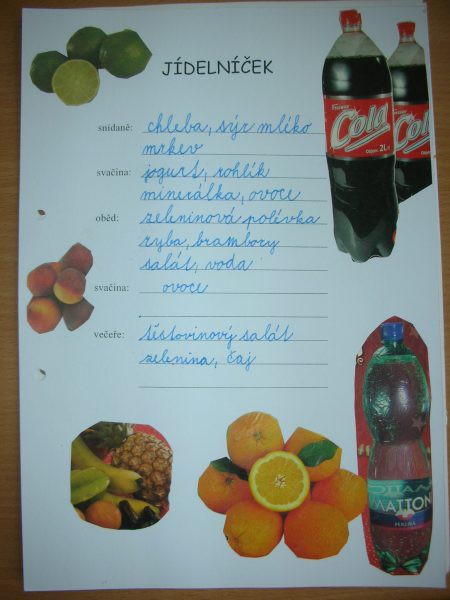 JÍDELNÍČEK
snídaně: chleba, sýr mléko
mrkev
svačina: jogurt, rohlík
minerálka, ovoce
oběd: zeleninová polévka
ryba, brambory
salát, voda
svačina: ovoce
večeře: těstovinový salát
zelenina, čaj
Cola
2L
Cola
MATTONI